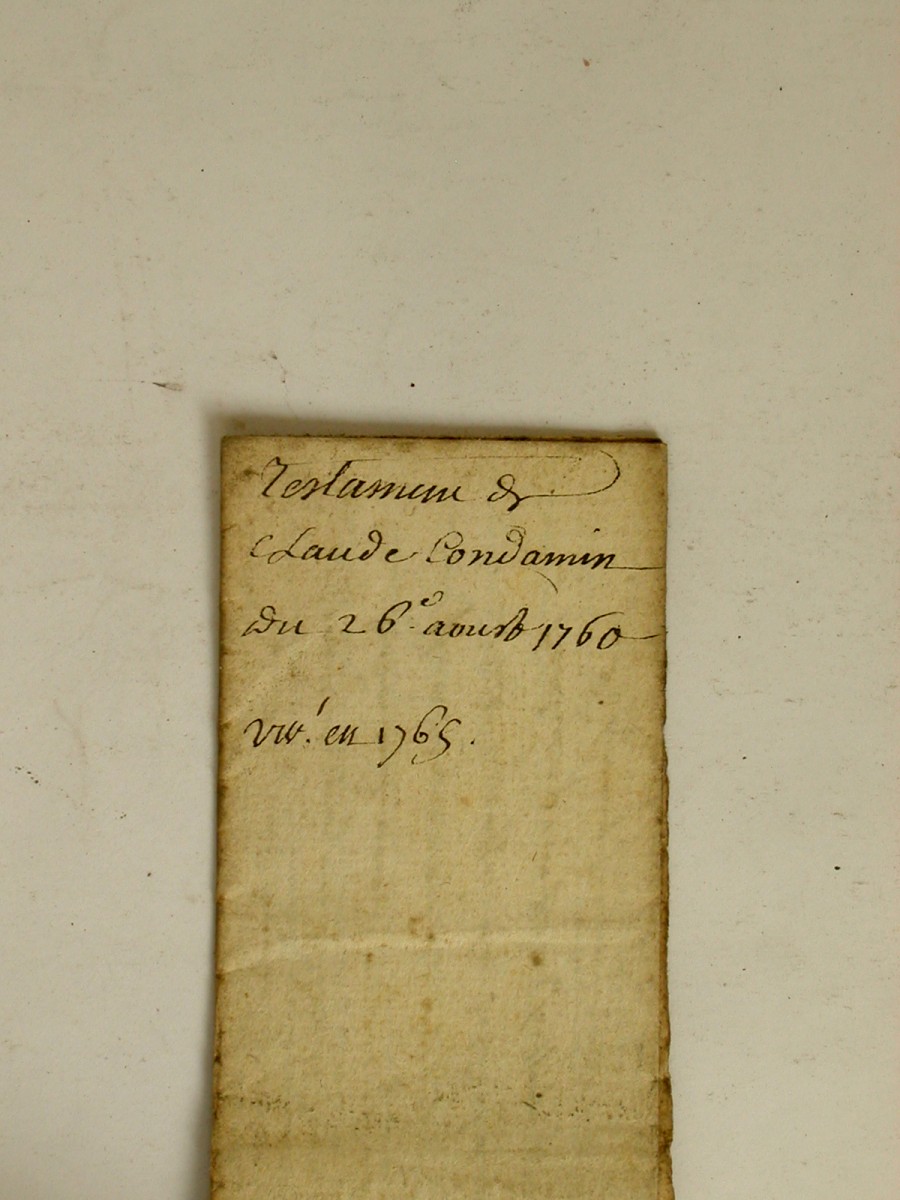 Testament de
Claude Condamin
du 26.e aoust 1760
en 1765.